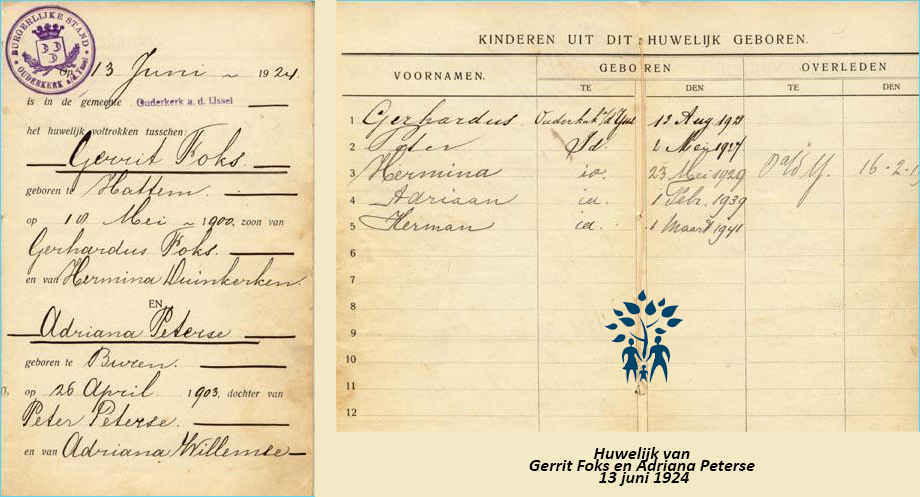 BURGERLIJKE STAND
OUDERKERK a/d IJssel
Op 13 Juni 1924.
is in de gemeente Ouderkerk a. d. IJssel
het huwelijk voltrokken tusschen
Gerrit Foks.
geboren te Hattem.
op Mei 1900. zoon van
Gerhardus Foks.
en van Hermina Duinkerken.
EN
Adriana Peterse
geboren te Buren.
op 26 April 1903, dochter van
Peter Peterse.
en van Adriana Willemse
KINDEREN UIT DIT HUWELIJK GEBOREN.
VOORNAMEN. GEBOREN OVERLEDEN
TE DEN TE DEN
1 Gerhardus. Aug
2 Peter Id. Mei 1927
3 Hermina id. 23 Mei 1929 16-2-1
4 Adriaan id. 1 Febr. 1939
5 Herman id. 1 Maart 1941
6
7
8
9
10
11
12
Huwelijk van
Gerrit Foks en Adriana Peterse
13 juni 1924